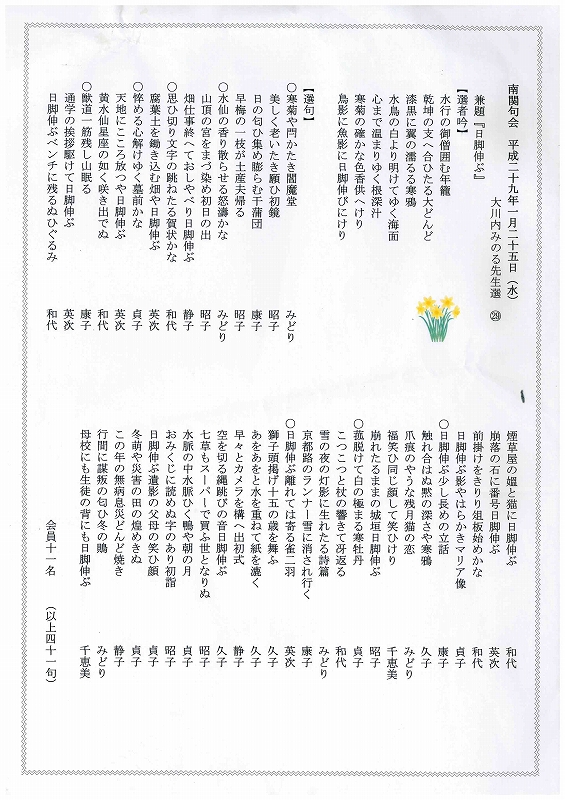 南関句会　平成二十九年一月二十五日（水）
大川内みのる先生選　㉙
兼題『日脚伸ぶ』
【選者吟】
水行の御僧囲む年籠
乾坤の支へ合ひたる大どんど
漆黒に翼の濡るる寒鴉
水鳥の白より明けてゆく海面
心まで温まりゆく根深汁
寒菊の確かな色香供へけり
鳥影に魚影に日脚伸びにけり
【選句】
〇寒菊や閂かたき閻魔堂　みどり
美しく老いたき願ひ初鏡　昭子
日の匂ひ集め膨らむ干蒲団　康子
早梅の一枝が土産夫帰る　昭子
〇水仙の香り散らせる怒濤かな　みどり
山頂の宮をまづ染め初日の出　昭子
畑仕事終へておしゃべり日脚伸ぶ　静子
〇思ひ切り文字の跳ねたる賀状かな　和代
腐葉土を鋤き込む畑や日脚伸ぶ　英次
〇悴める心解けゆく墓前かな　貞子
天地にこころ放つや日脚伸ぶ　英次
黄水仙星座の如く咲き出でぬ　和代
〇獣道一筋残し山眠る　康子
通学の挨拶駆けて日脚伸ぶ　英次
日脚伸ぶベンチに残るぬひぐるみ　和代
煙草屋の媼と猫に日脚伸ぶ　和代
崩落の石に番号日脚伸ぶ　英次
前掛けをきりり俎板始めかな　和代
日脚伸ぶ影やはらかきマリア像　貞子
〇日脚伸ぶ少し長めの立話　康子
触れ合はぬ黙の深さや寒鴉　久子
爪痕のやうな残月猫の恋　みどり
福笑ひ同じ顔して笑ひけり　千恵美
崩れたるままの城垣日脚伸ぶ　昭子
〇菰脱けて白の極まる寒牡丹　貞子
こつこつと杖の響きて冴返る　和代
雪の夜の灯影に生れたる詩篇　みどり
京都路のランナー雪に消され行く　康子
〇日脚伸ぶ離れては寄る雀二羽　英次
獅子頭掲げ十五の歳を舞ふ　久子
あをあをと水を重ねて紙を漉く　久子
早々とカメラを構へ出初式　静子
空を切る縄跳びの音日脚伸ぶ　久子
七草もスーパーで買ふ世となりぬ　昭子
水脈の中水脈ひく鴨や朝の月　貞子
おみくじに読めぬ字のあり初詣　昭子
日脚伸ぶ遺影の父母の笑ひ顔　貞子
冬萌や災害の田の煌めきぬ　貞子
この年の無病息災どんど焼き　静子
行間に謀叛の匂ひ冬の鵙　みどり
母校にも生徒の背にも日脚伸ぶ　千恵美
会員十一名　（以上四十一句）